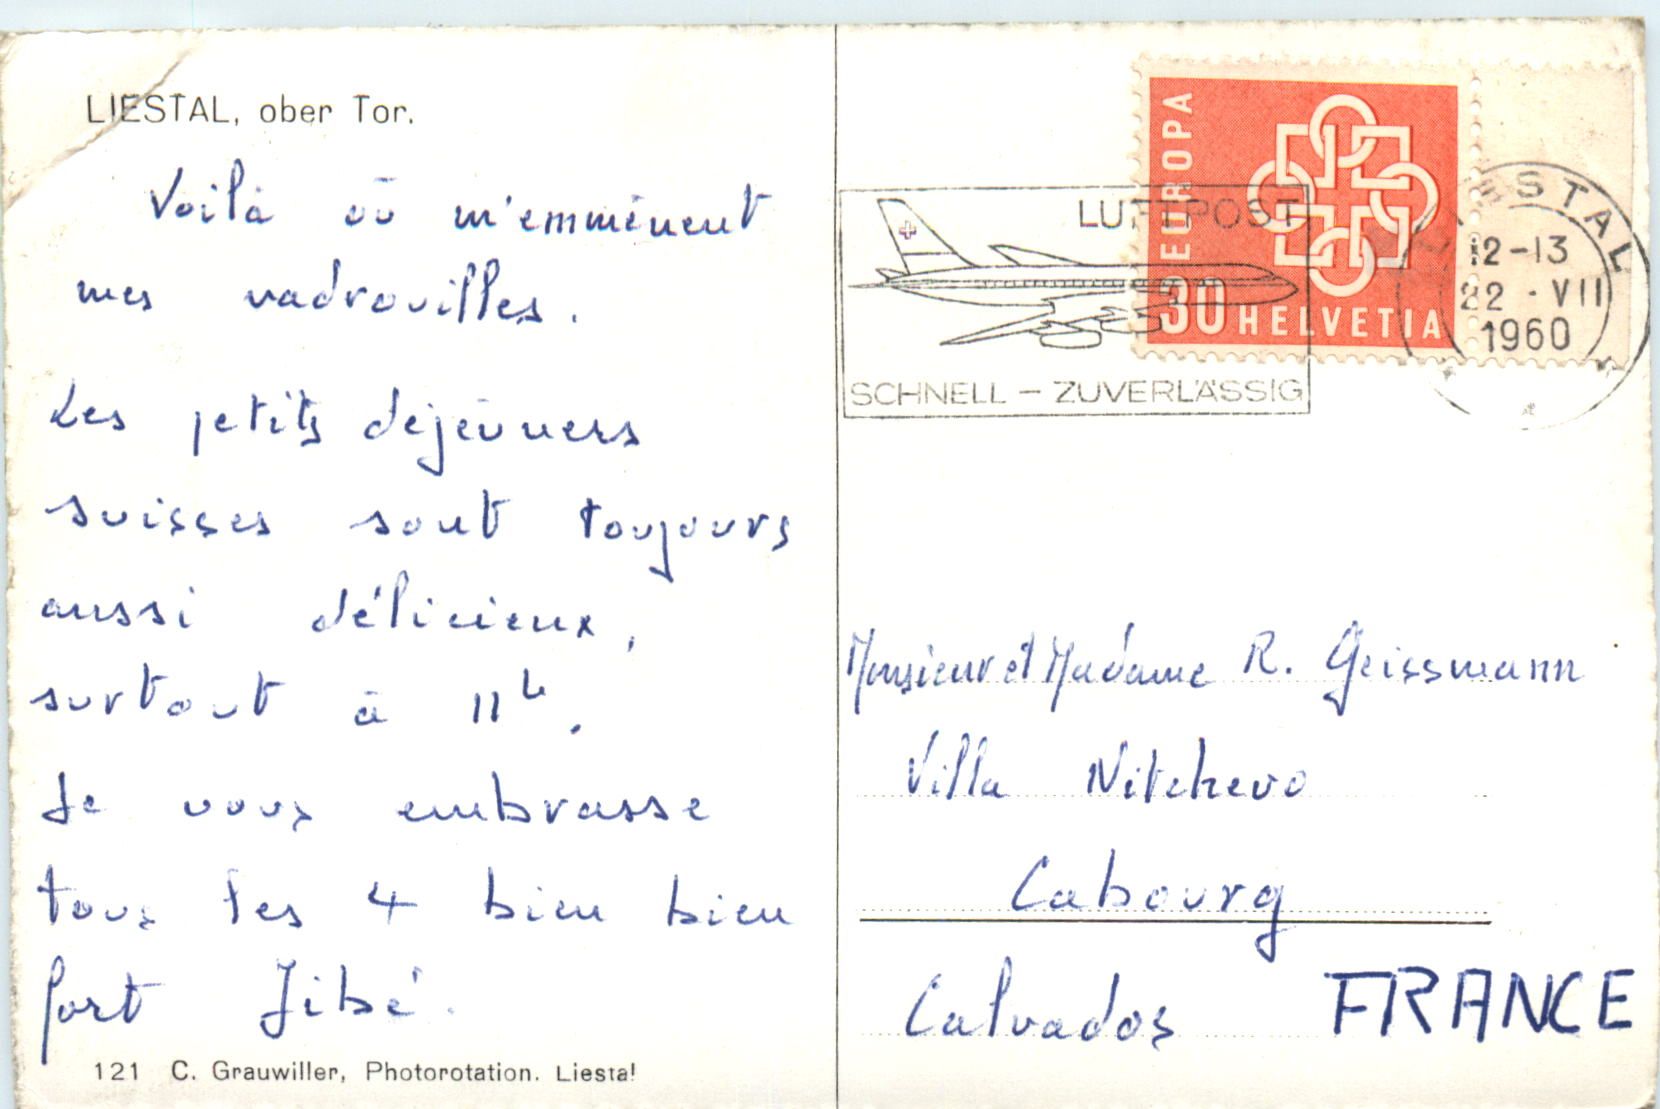 LIESTAL, ober Tor.
Voilà où m'emmènent
mes vadrouilles.
Les petits déjeuners
suisses sont toujours
aussi délicieux,
surtout à 11h.
Je vous embrasse
tous les 4 bien bien
fort Jibé.
121 C. Grauwiller, Photorotation. Liestal
EUROPA
30 HELVETIA
LUFTPOST
SCHNELL – ZUVERLÄSSIG
LIESTAL
12-13
22.VII
1960
Monsieur et Madame R. Geissmann
Villa Nitchevo
Cabourg
Calvados FRANCE